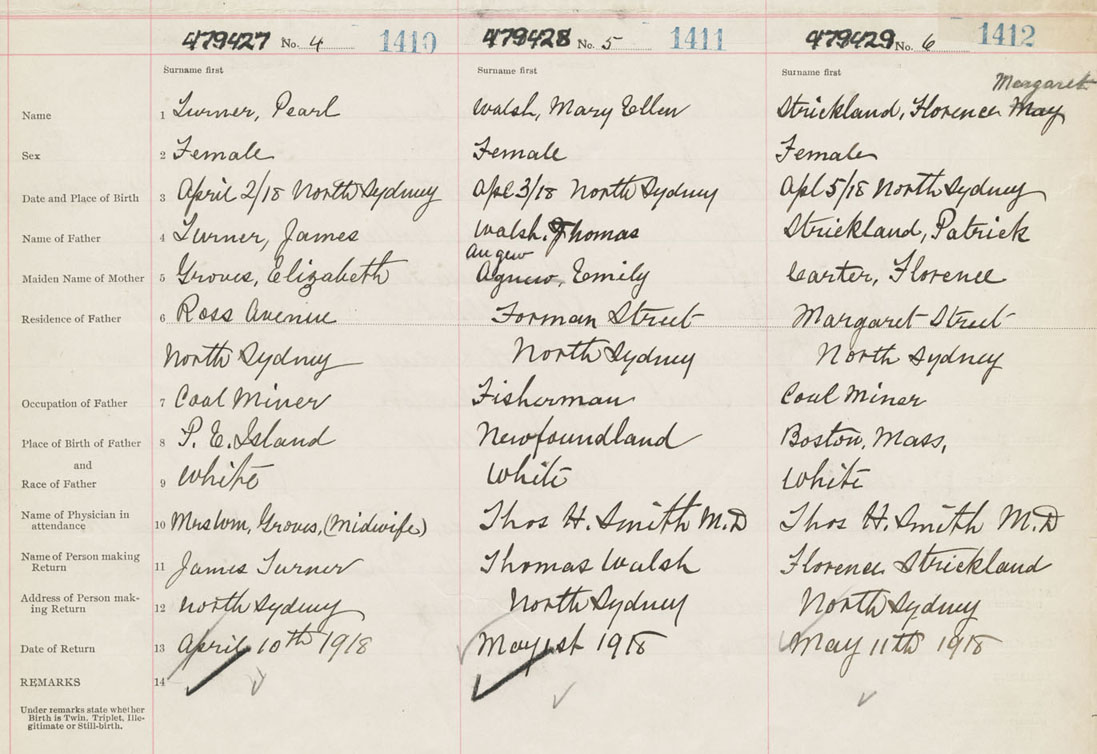 479427 No. 4 1410 479428 No. 5 1411 479429 No. 6 1412
Surname first Surname first Surname first
Margaret
Name 1 Turner, Pearl Walsh, Mary Ellen Strickland, Florence May
Sex 2 Female Female Female
Date and Place of Birth 3 April 2/18 North Sydney Apl 3/18 North Sydney Apl 5/18 North Sydney
Name of Father 4 Turner, James Walsh, Thomas Strickland, Patrick
Angew
Maiden Name of Mother 5 Groves, Elizabeth Agnew, Emily Carter, Florence
Residence of Father 6 Ross Avenue Forman Street Margaret Street
North Sydney North Sydney North Sydney
Occupation of Father 7 Coal Miner Fisherman Coal Miner
Place of Birth of Father 8 P. E. Island Newfoundland Boston, Mass,
and
Race of Father 9 White White White
Name of Physician in
attendance 10 Mrs Wm, Groves, (Midwife) Thos H. Smith M.D Thos H. Smith M.D
Name of Person making
Return 11 James Turner Thomas Walsh Florence Strickland
Address of Person mak-
ing Return 12 North Sydney North Sydney North Sydney
Date of Return 13 April 10th 1918 May 1st 1918 May 11th 1918
REMARKS 14
Under remarks state whether
Birth is Twin, Triplet, Ille-
gitimate or Still-birth.